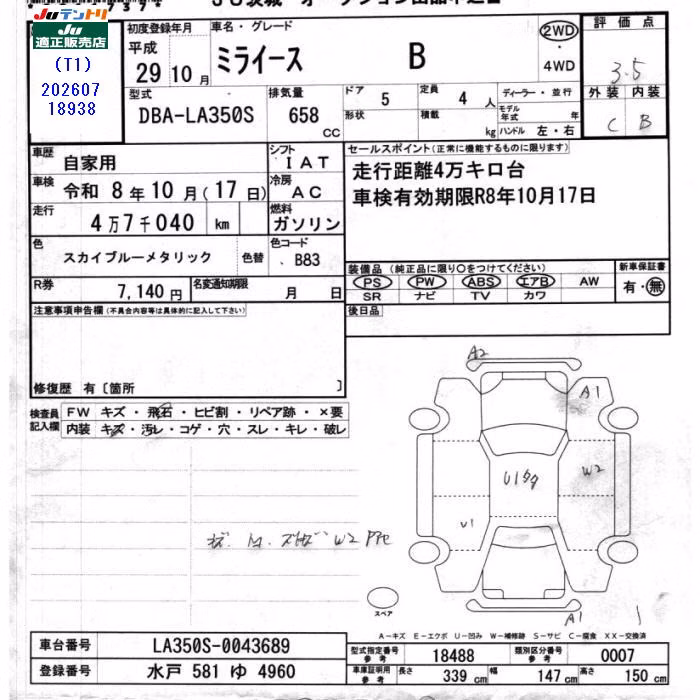 Juテントリ
Ju適正販売店
(T1)
202607
18938
初度登録年月
平成
29 10 月
車名・グレード
ミライース B
2WD
・
4WD
評価点
3.5
外装 内装
C B
型式
DBA-LA350S
排気量
658
CC
ドア
5
形状
定員
4 人
積載
kg
ディーラー・並行
モデル年式 年
ハンドル 左・右
車歴
自家用
シフト
IAT
車検
令和 8年 10月(17日)
冷房
AC
走行
4万7千040 km
燃料
ガソリン
色
スカイブルーメタリック
色替
色コード
B83
R券
7,140 円
名変通知期限
月 日
セールスポイント(正常に機能するものに限ります)
走行距離4万キロ台
車検有効期限R8年10月17日
装備品(純正品に限り○をつけてください)
PS PW ABS エアB AW
SR ナビ TV カワ
新車保証書
有・無
後日品
注意事項申告欄(不具合内容等は具体的に記入して下さい)
修復歴 有〔箇所 〕
検査員記入欄
FW キズ・飛石・ヒビ割・リペア跡・×要
内装 キズ・汚レ・コゲ・穴・スレ・キレ・破レ
A2
A1
W2
U1
A1
W2
スペア
A-キズ E-エクボ U-凹み W-補修跡 S-サビ C-腐食 XX-交換済
車台番号
LA350S-0043689
登録番号
水戸 581 ゆ 4960
型式指定番号
参考
18488
類別区分番号
参考
0007
車庫証明用
参考
長さ
339 cm
幅
147 cm
高さ
150 cm